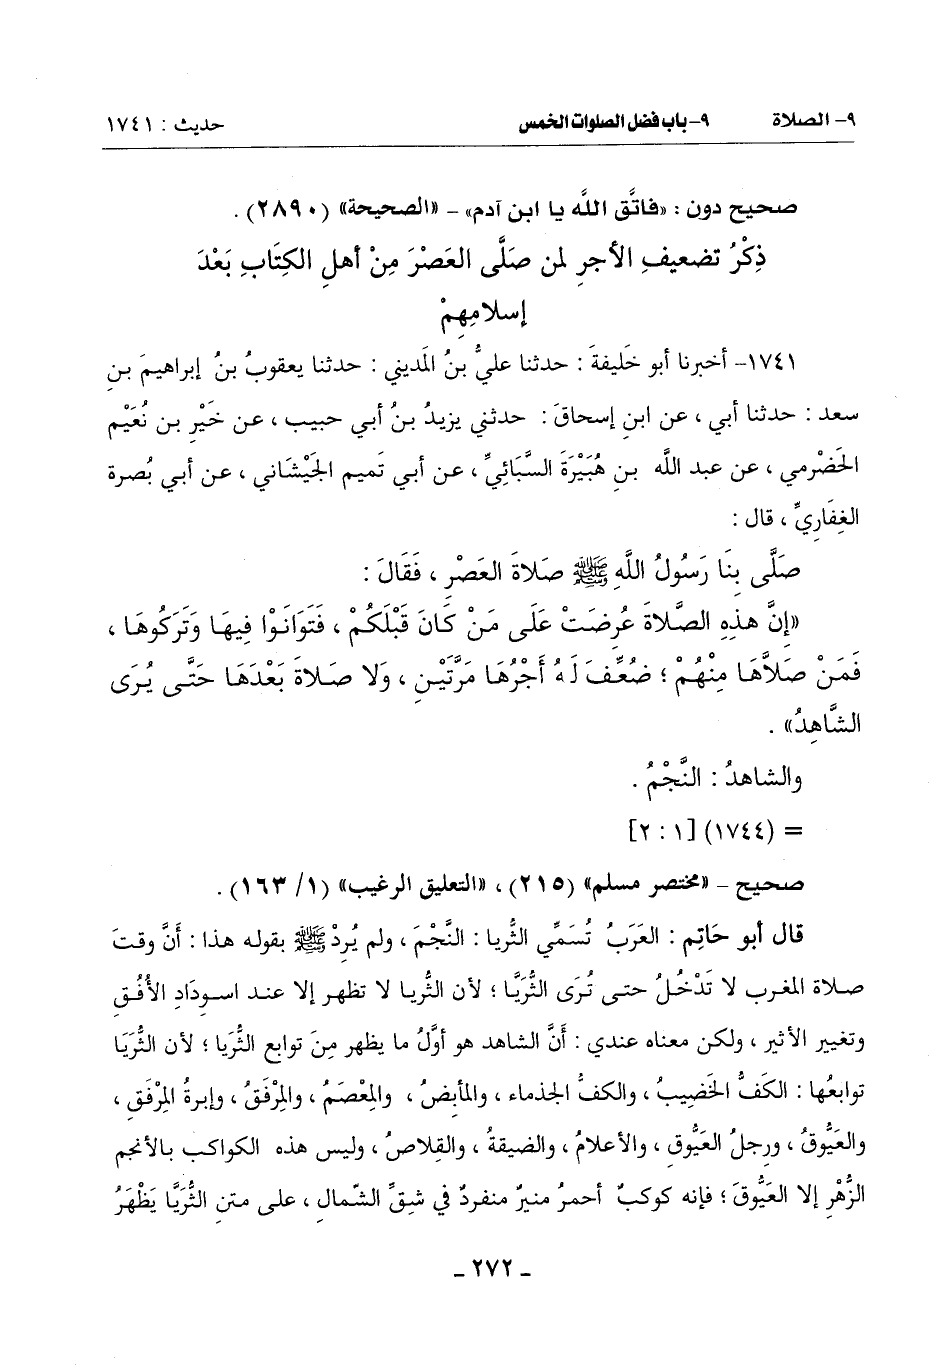 ٩- الصلاة ٩- باب فضل الصلوات الخمس حديث : ١٧٤١
صحيح دون : «فاتَّق اللَّه يا ابن آدم» - «الصحيحة» (٢٨٩٠) .
ذِكْرُ تضعيفِ الأجرِ لمن صَلَّى العَصْرَ مِنْ أهلِ الكِتَابِ بَعْدَ
إسلامِهِمْ
١٧٤١- أخبرنا أبو خَليفةَ : حدثنا عليُّ بنُ المَديني : حدثنا يعقوبُ بنُ إبراهيمَ بنِ
سعد : حدثنا أبي ، عن ابنِ إسحاقَ : حدثني يزيدُ بنُ أبي حبيب ، عن خَيْرِ بن نُعَيْم
الحَضْرمي ، عن عبد اللَّه بنِ هُبَيْرَةَ السَّبَائِيِّ ، عن أبي تَميم الجَيْشاني ، عن أبي بُصرة
الغِفَاريِّ ، قال :
صَلَّى بِنَا رَسُولُ اللَّهِ ﷺ صَلاةَ العَصْرِ ، فَقَالَ :
«إنَّ هذِهِ الصَّلاةَ عُرِضَتْ عَلَى مَنْ كَانَ قَبْلَكُمْ ، فَتَوَانَوْا فِيهَا وَتَرَكُوهَا ،
فَمَنْ صَلاَّهَا مِنْهُمْ ؛ ضُعِّفَ لَهُ أَجْرُهَا مَرَّتَيْنِ ، وَلا صَلاةَ بَعْدَهَا حَتَّى يُرَى
الشَّاهِدُ» .
والشاهدُ : النَّجْمُ .
= (١٧٤٤) [١ : ٢]
صحيح - «مختصر مسلم» (٢١٥) ، «التعليق الرغيب» (١/ ١٦٣) .
قال أبو حَاتِم : العَرَبُ تُسَمِّي الثُّريا : النَّجْمَ ، ولم يُرِدْ ﷺ بقوله هذا : أنَّ وقتَ
صلاة المغرب لا تَدْخُلُ حتى تُرَى الثُّرَيَّا ؛ لأن الثُّريا لا تظهر إلا عند اسودَادِ الأُفُقِ
وتغيير الأثير ، ولكن معناه عندي : أنَّ الشاهد هو أوَّلُ ما يظهر مِنَ توابع الثُّريَا ؛ لأن الثُّرَيَا
توابعُها : الكَفُّ الخَضِيبُ ، والكفُّ الجذماء ، والمأبضُ ، والمِعْصَمُ ، والمِرْفَقُ ، وإبرةُ المِرْفَقِ ،
والعَيُّوقُ ، ورجلُ العَيُّوقِ ، والأعلامُ ، والضيقةُ ، والقِلاصُ ، وليس هذه الكواكب بالأنجم
الزُّهْرِ إلا العَيُّوقَ ؛ فإنه كوكبٌ أحمرُ منيرٌ منفردٌ في شِقِّ الشّمالِ ، على متنِ الثُّريَّا يَظْهَرُ
- ٢٧٢ -